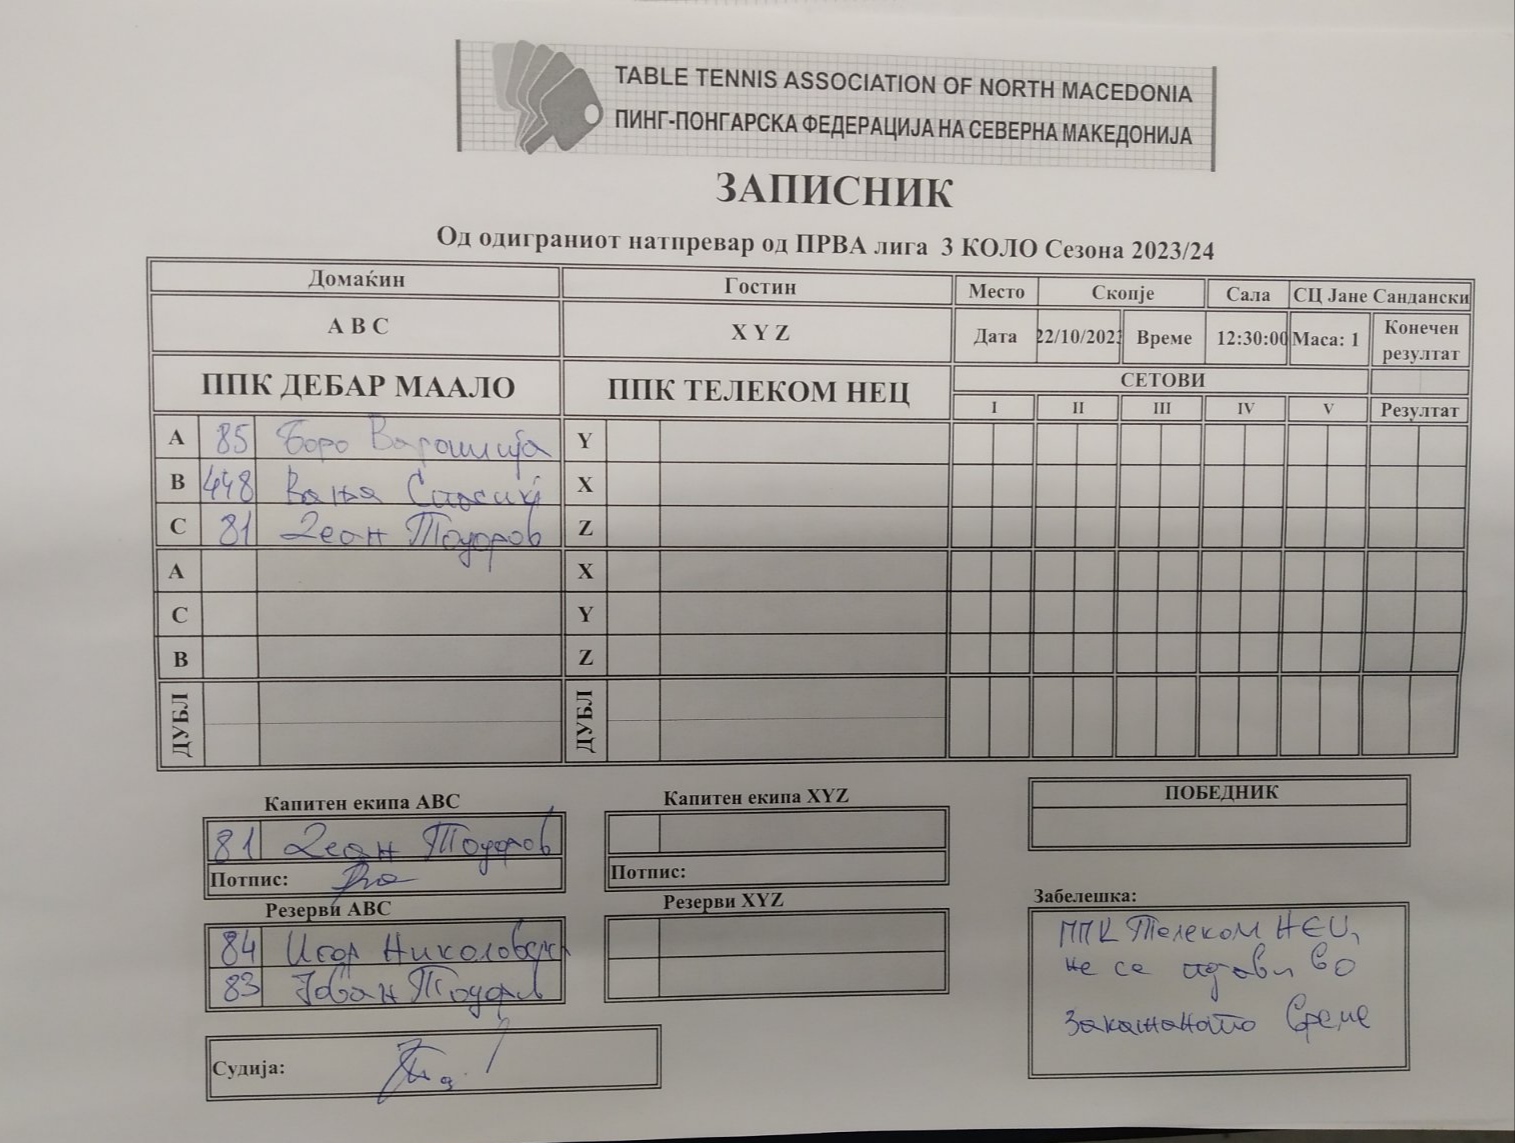 TABLE TENNIS ASSOCIATION OF NORTH MACEDONIA
ПИНГ-ПОНГАРСКА ФЕДЕРАЦИЈА НА СЕВЕРНА МАКЕДОНИЈА
ЗАПИСНИК
Од одиграниот натпревар од ПРВА лига 3 КОЛО Сезона 2023/24
Домаќин Гостин Место Скопје Сала СЦ Јане Сандански
A B C X Y Z Дата 22/10/2023 Време 12:30:00 Маса: 1 Конечен резултат
ППК ДЕБАР МААЛО ППК ТЕЛЕКОМ НЕЦ СЕТОВИ
I II III IV V Резултат
A 85 Боро Варошлија Y
B 448 Вања Спасиќ X
C 81 Зеан Тодоров Z
A X
C Y
B Z
ДУБЛ ДУБЛ
Капитен екипа ABC Капитен екипа XYZ ПОБЕДНИК
81 Зеан Тодоров
Потпис: Потпис:
Резерви ABC Резерви XYZ Забелешка:
84 Игор Николовски
83 Јован Тодоров
ППК Телеком НЕЦ
не се појави во
закажаното време
Судија: